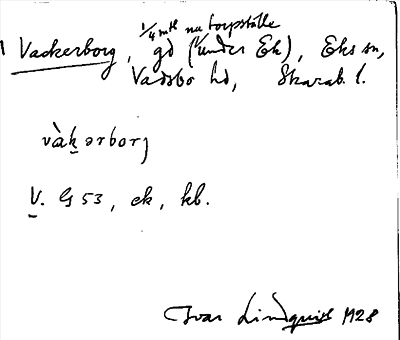 1/4 mtl nu torpställe
Vackerborg, gd (under Ek), Eks sn,
Vadsbo hd, Skarab. l.
vàk̠ərborj
V. G 53, ek, kb.
Ivar Lindquist 1928